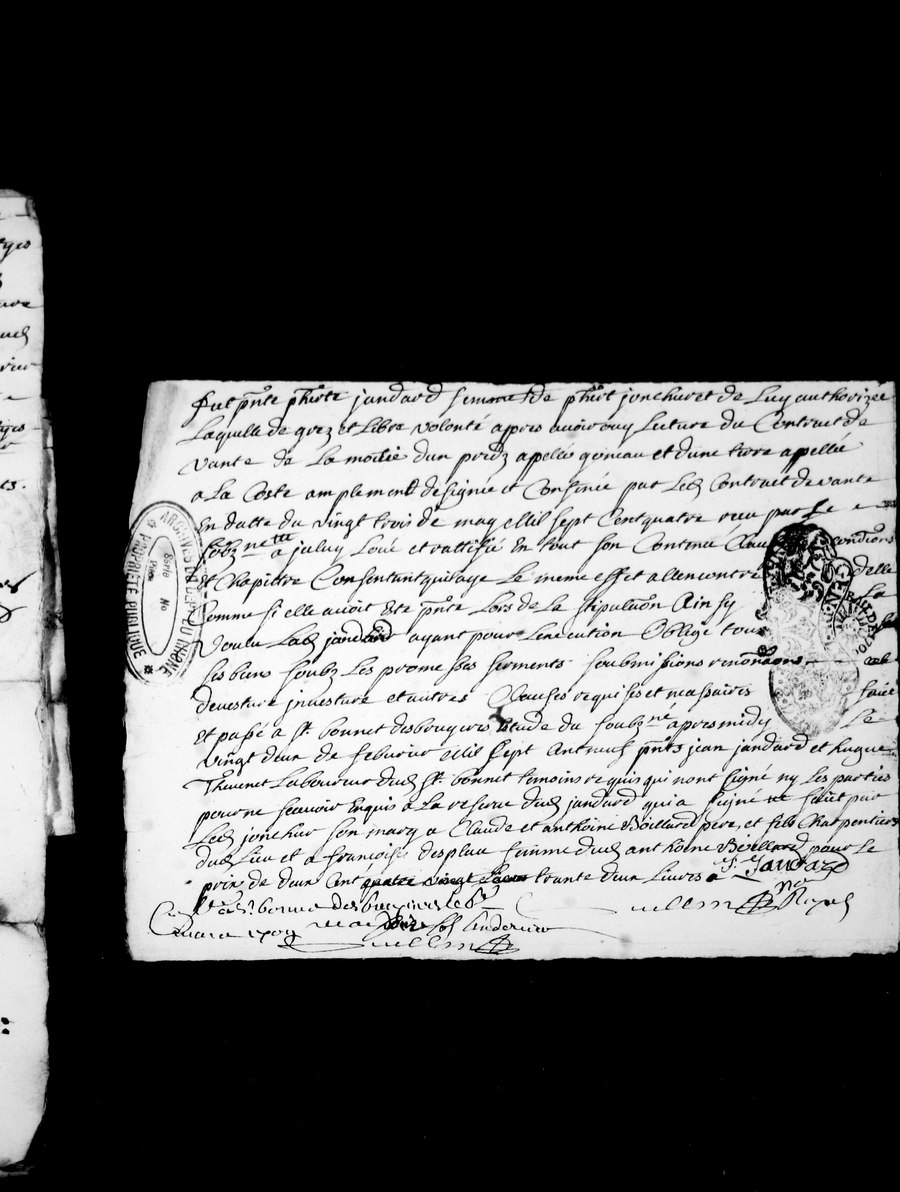 fut pnte phirte jandard femme de phirt joncheret de Luy authorizée
Laquelle de grez et Libre volonté apres avoir ouy Lecture du Contract de
vante de La moitie dun predz apellé goneau et dune terre appellée
a La Coste amplement designée et Confinée par Led Contract de vante
En datte du vingt trois de may Mil sept Cent quatre receu par Le
soubzne a jceluy Loué et rattifié En tout son Contenu Clauses condions
Et Chapittre Consentant quil aye Le meme effet allencontre delle
Comme si elle avoit Eté pnte Lors de La stipulaõn Ainsy La
voulu Lad jandard ayant pour Lexecution Obligé tous
ses biens soubz Les promesses serments soubmissions renonaõns
devesture jnvesture et autres Clauses requises et nessaires faict
et passé a st. bonnet desbruyeres Etude du soubzné apres midy Le
vingt deux de febvrier Mil sept Cent neuf pnts jean jandard et hugue
Thevenet Laboureur dud st. bonnet temoins requis qui nont signé ny Les parties
pour ne scavoir Enquis a La reserve dud jandard qui a signé faict par
Led joncheret son mary a Claude et anthoine Boillard pere et fils Charpentiers
dud Lieu et a françoise desplau femme dud anthoine Boillard pour Le
prix de deux Cent quatre vingt trante deux Livres J. Jandard
a st bonnet desbruyeres le Royal
mars 1709
ARCHIVES DU DEPT DU RHONE
PROPRIÉTÉ PUBLIQUE
Série
No